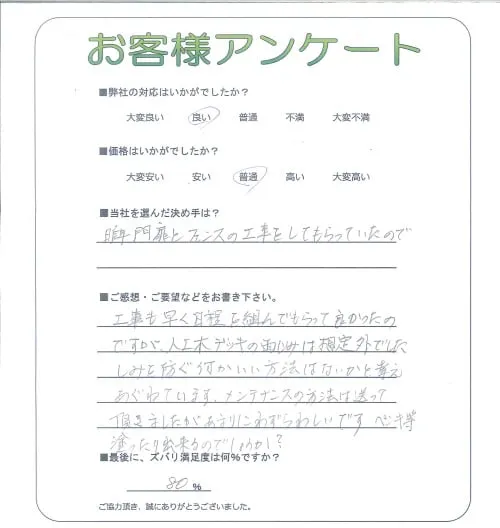 お客様アンケート
■弊社の対応はいかがでしたか？
大変良い 良い 普通 不満 大変不満
■価格はいかがでしたか？
大変安い 安い 普通 高い 大変高い
■当社を選んだ決め手は？
門扉とフェンスの工事をしてもらっていたので
■ご感想・ご要望などをお書き下さい。
工事も早く日程を組んでもらって良かったの
ですが、人工木デッキの雨じみは想定外でした
しみを防ぐ何かいい方法はないかと考え
あぐねています、メンテナンスの方法は送って
頂きましたがあまりにわずらわしいです ペンキ等
塗ったり出来るのでしょうか？
■最後に、ズバリ満足度は何％ですか？
80 %
ご協力頂き、誠にありがとうございました。